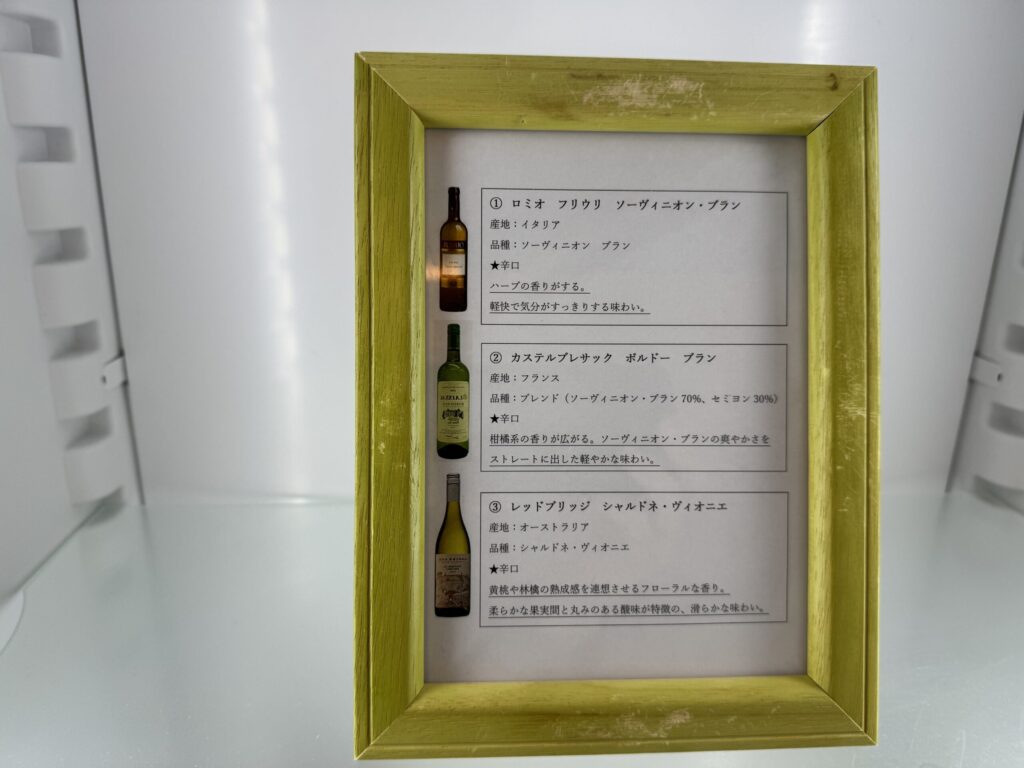 ① ロミオ　フリウリ　ソーヴィニオン・ブラン
産地：イタリア
品種：ソーヴィニオン　ブラン
★辛口
ハーブの香りがする。
軽快で気分がすっきりする味わい。
② カステルプレサック　ボルドー　ブラン
産地：フランス
品種：ブレンド（ソーヴィニオン・ブラン 70%、セミヨン 30%）
★辛口
柑橘系の香りが広がる。ソーヴィニオン・ブランの爽やかさを
ストレートに出した軽やかな味わい。
③ レッドブリッジ　シャルドネ・ヴィオニエ
産地：オーストラリア
品種：シャルドネ・ヴィオニエ
★辛口
黄桃や林檎の熟成感を連想させるフローラルな香り。
柔らかな果実間と丸みのある酸味が特徴の、滑らかな味わい。